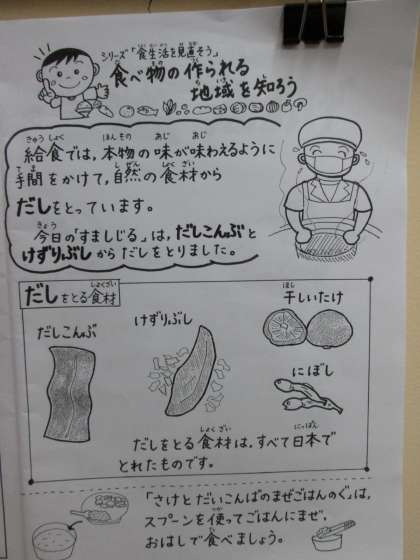 シリーズ「食生活を見直そう」
食べ物の作られる
地域を知ろう
給食では、本物の味が味わえるように
手間をかけて、自然の食材から
だしをとっています。
今日の「すましじる」は、だしこんぶと
けずりぶしからだしをとりました。
だしをとる食材
だしこんぶ
けずりぶし
干しいたけ
にぼし
だしをとる食材は、すべて日本で
とれたものです。
「さけとだいこんばのまぜごはんのぐ」は、
スプーンを使ってごはんにまぜ、
おはしで食べましょう。